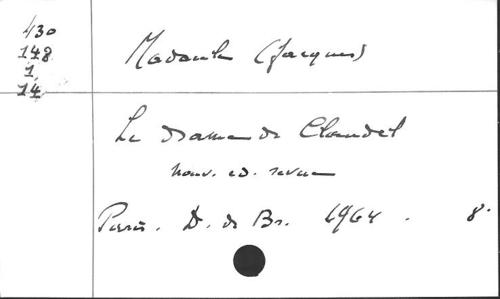 430
148
1
14
Madaule (Jacques)
Le drame de Claudel
nouv. ed. revue
Paris. D. de Br. 1964. 8°